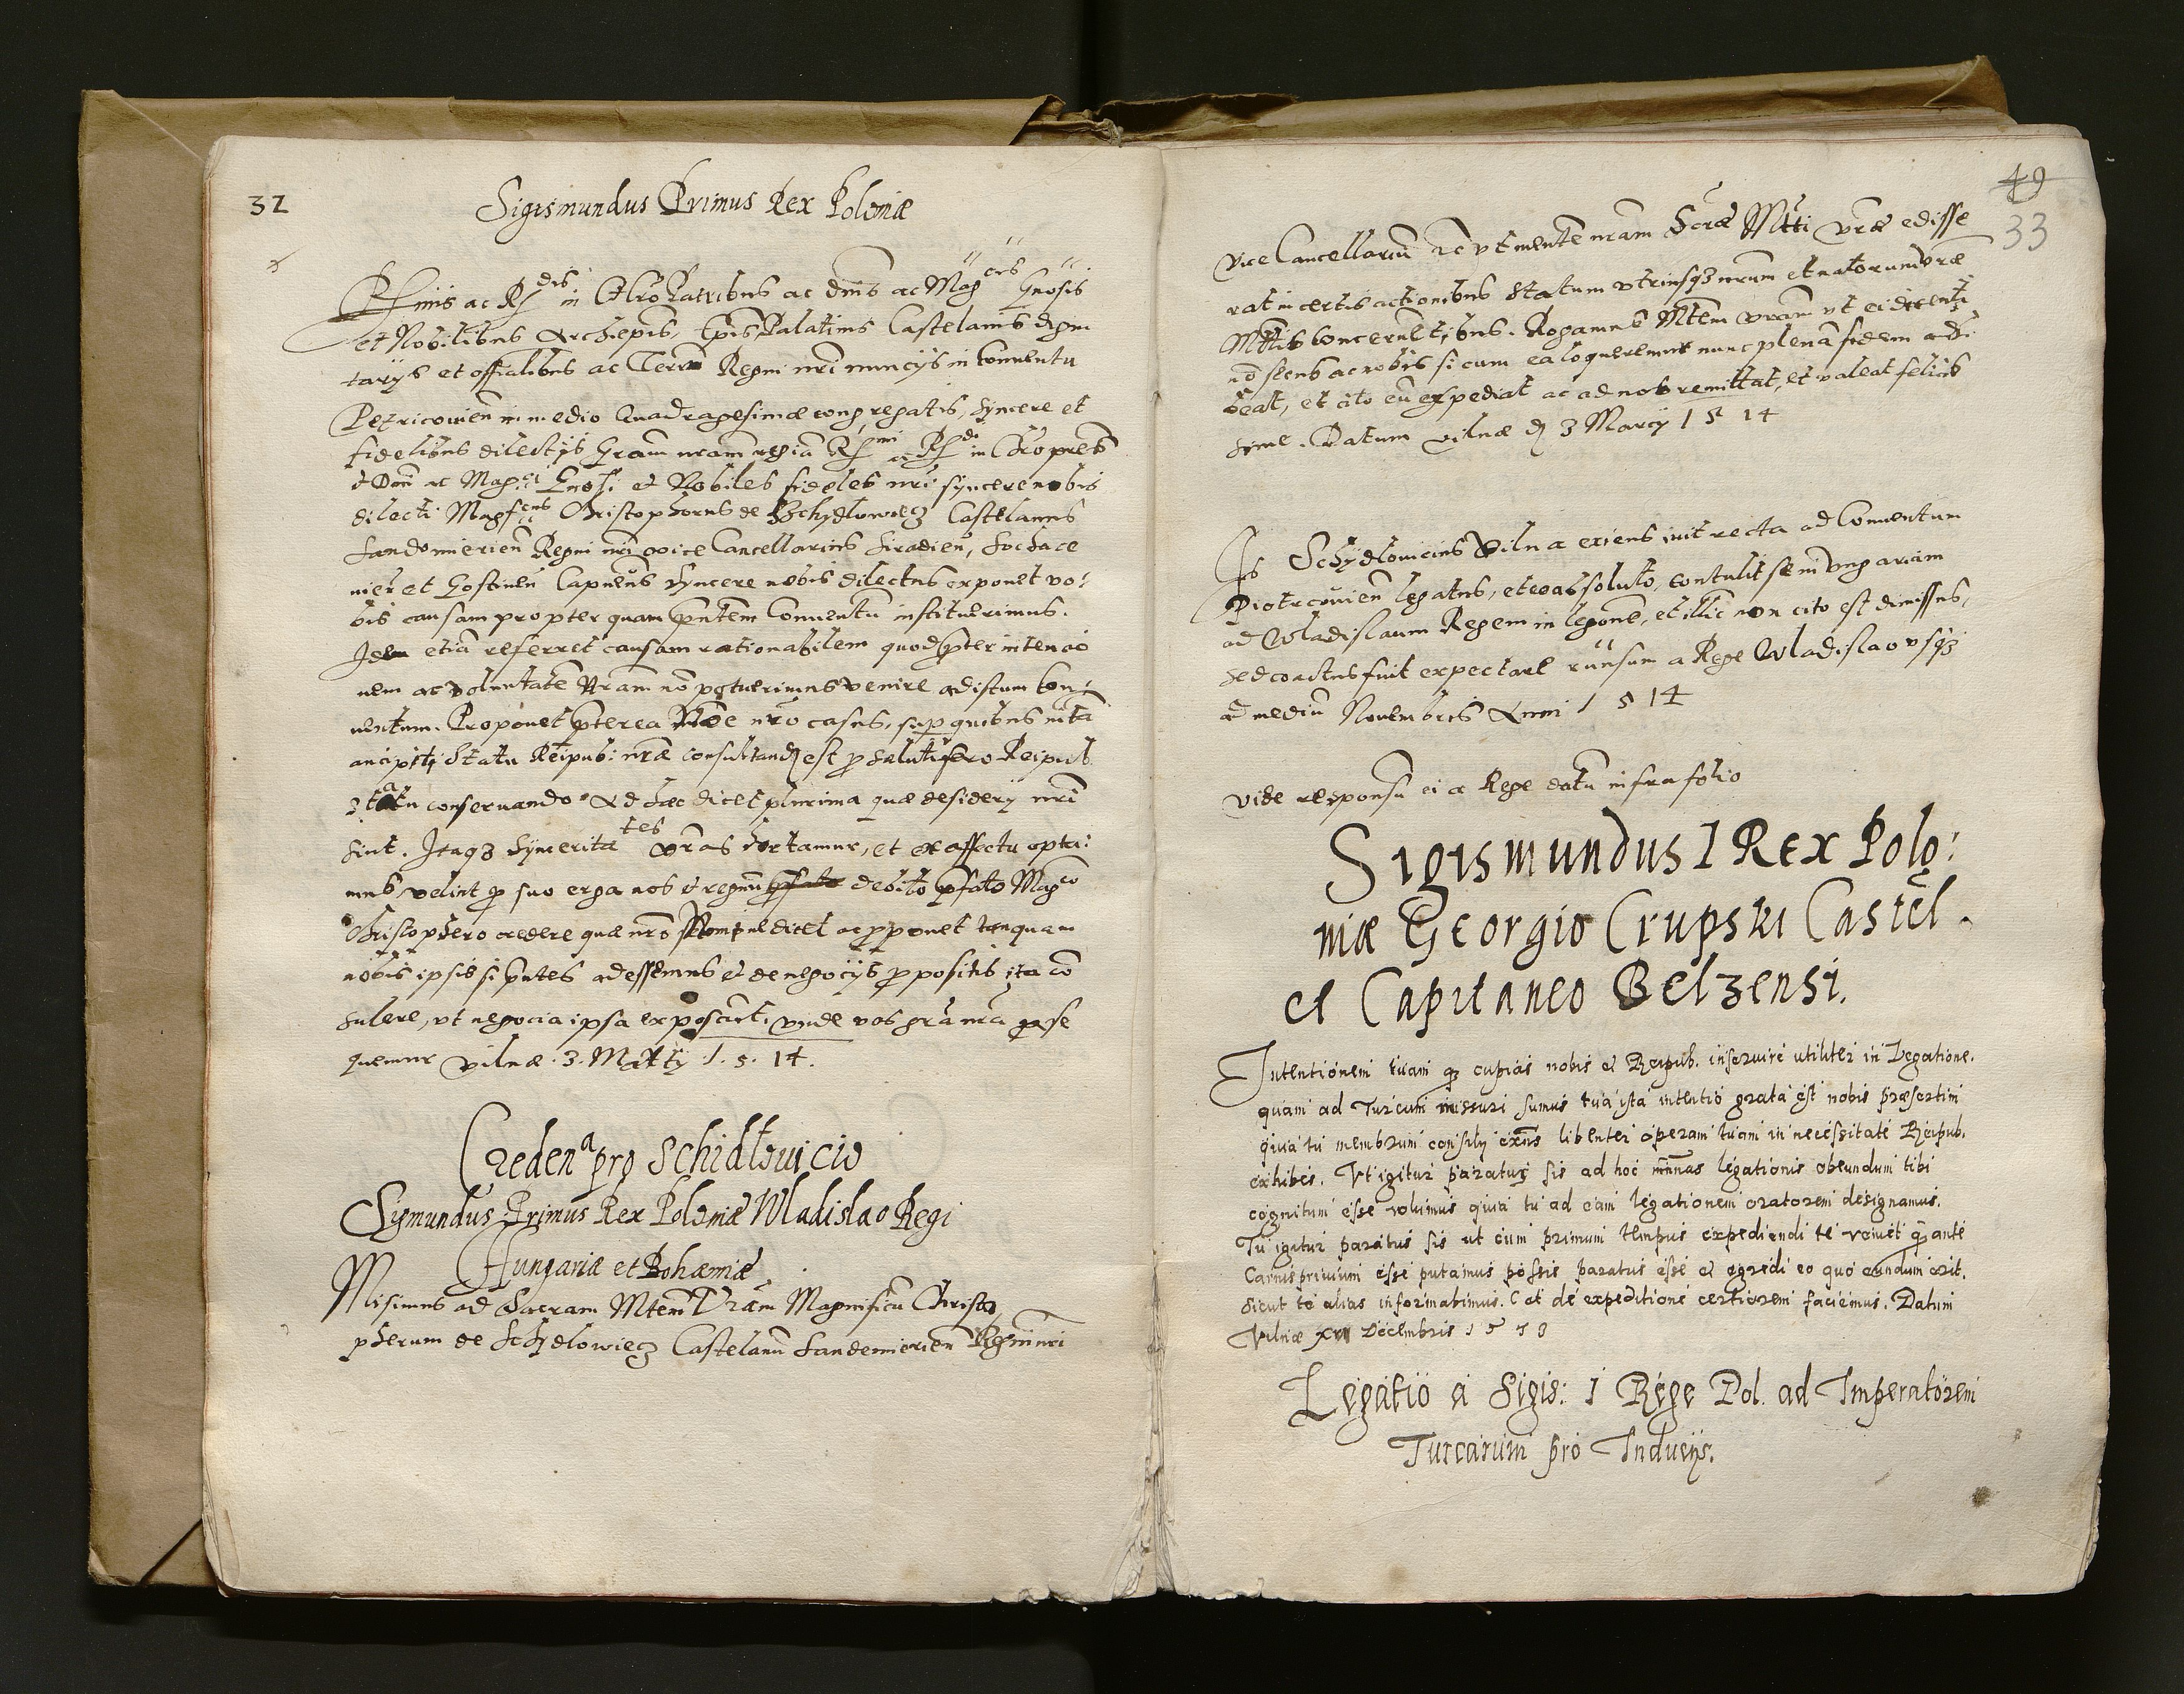 32
Sigismundus Primus Rex Poloniæ
Rſmis ac Rſdis in Chro Patribus ac dnis ac Magcis Gnosis
et Nobilibus Archiepis, Epis Palatinis Castelanis digni
tarijs et offialibus ac Terrarum Regni nri nuncijs in Conuentu
Petricouien in medio Quadragesimæ congregatis, syncere et
fidelibus dilectis Gram nram regiã Rſmi ac Rſdi in Chro pres
et Dni ac Magci Gnosi et Nobiles fideles nri syncere nobis
dilecti Magfcus Christophorus de Schydlowiecz Castelanus
Sandomierien Regni nri vice Cancellarius Siradien, Sochace
uien et Gostinen Capneus Syncere nobis dilectus exponet vo:
bis causam propter quam pntem Conuentũ instituerimus.
Idem etiã referret causam rationabilem quod pter intencio
nem ac voluntatẽ nram nõ potuerimus venire ad istum Con:
uentum. Proponet pterea nõie nro casus, sup quibus in tã
ancipiti Statu Reipub: nræ consultandũ est p salutifero Reipub
statu conseruando. Ad hæc dicet plurima quæ desiderij nri
sint. Itaqz Syncerita tes vras hortamur, et ex affectu opta:
mus, velint p suo erga nos et regnũ debito pfato Magco
Christophero credere quæ nro Nomine dicet ac pponet tanquam
nobis ipsis si pntes adessemus et de negocijs ppositis ita cõ
sulere, vt negocia ipsa exposcũt, vnde vos grã nrã pse
quemur Vilnæ. 3. Martij 1. 5. 14.
Creden a pro Schidlouicio
Sigmundus Primus Rex Poloniæ Wladislao Regi
Hungariæ et Bohæmiæ
Misimus ad Sacram Mtem Vram Magnificũ Christo
pherum de Schydlowiecz Castelanũ Sandemierien Regni nri
49
33
vice Cancellariũ ac vt mentẽ nram Scræ Mtti vræ edisse
rat in certis actionibus Statum vtriusqz nrum et natorum vræ
Mttis concernẽtibus. Rogamus Mtem vram vt ei dicenti
nõ secus ac nobis si cum ea loqueremur nunc plenã fidem adhi
beat, et cito eũ expediat ac ad nos remittat, et valeat felicis
sime. Datum Vilnæ d 3 Marcij 1 5 14
Is Schydlouicius Vilna exiens iuit recta ad Conuentum
Piotrcouien legatus, et eo absoluto, contulit se in Vngariam
ad Wladislaum Regem in legone, et illic non cito est dimissus,
sed coactus fuit expectare rursum a Rege Wladislao vsqz
ad mediũ Nouembris Anni 1 5 14
Vide responsũ ei a Rege datũ infra folio
Sigismundus I Rex Polo:
niæ Georgio Crupski Castel.
et Capitaneo Belzensi.
Intentionem tuam qz cupias nobis et Reipub. inseruire utiliter in Legatione.
quam ad Turcum missuri sumus tua ista intentio grata est nobis præsertim
quia tu membrum consilij exñs libenter operam tuam in necessitate Reipub.
exhibes. Vt igitur paratus sis ad hoc munus legationis obeundum tibi
cognitum esse voluimus quia tu ad eam legationem oratorem designamus.
Tu igitur paratus sis ut cum primum tempus expediendi te veniet qd ante
Carnisprivium esse putamus possis paratus esse et egredi eo quo eundum erit.
sicut te alias informabimus. Cæt de expeditione certiorem faciemus. Datum
Vilnæ XVII Decembris 1 5 1 3
Legatio a Sigis: I Rege Pol. ad Imperatorem
Turcarum pro Inducijs.